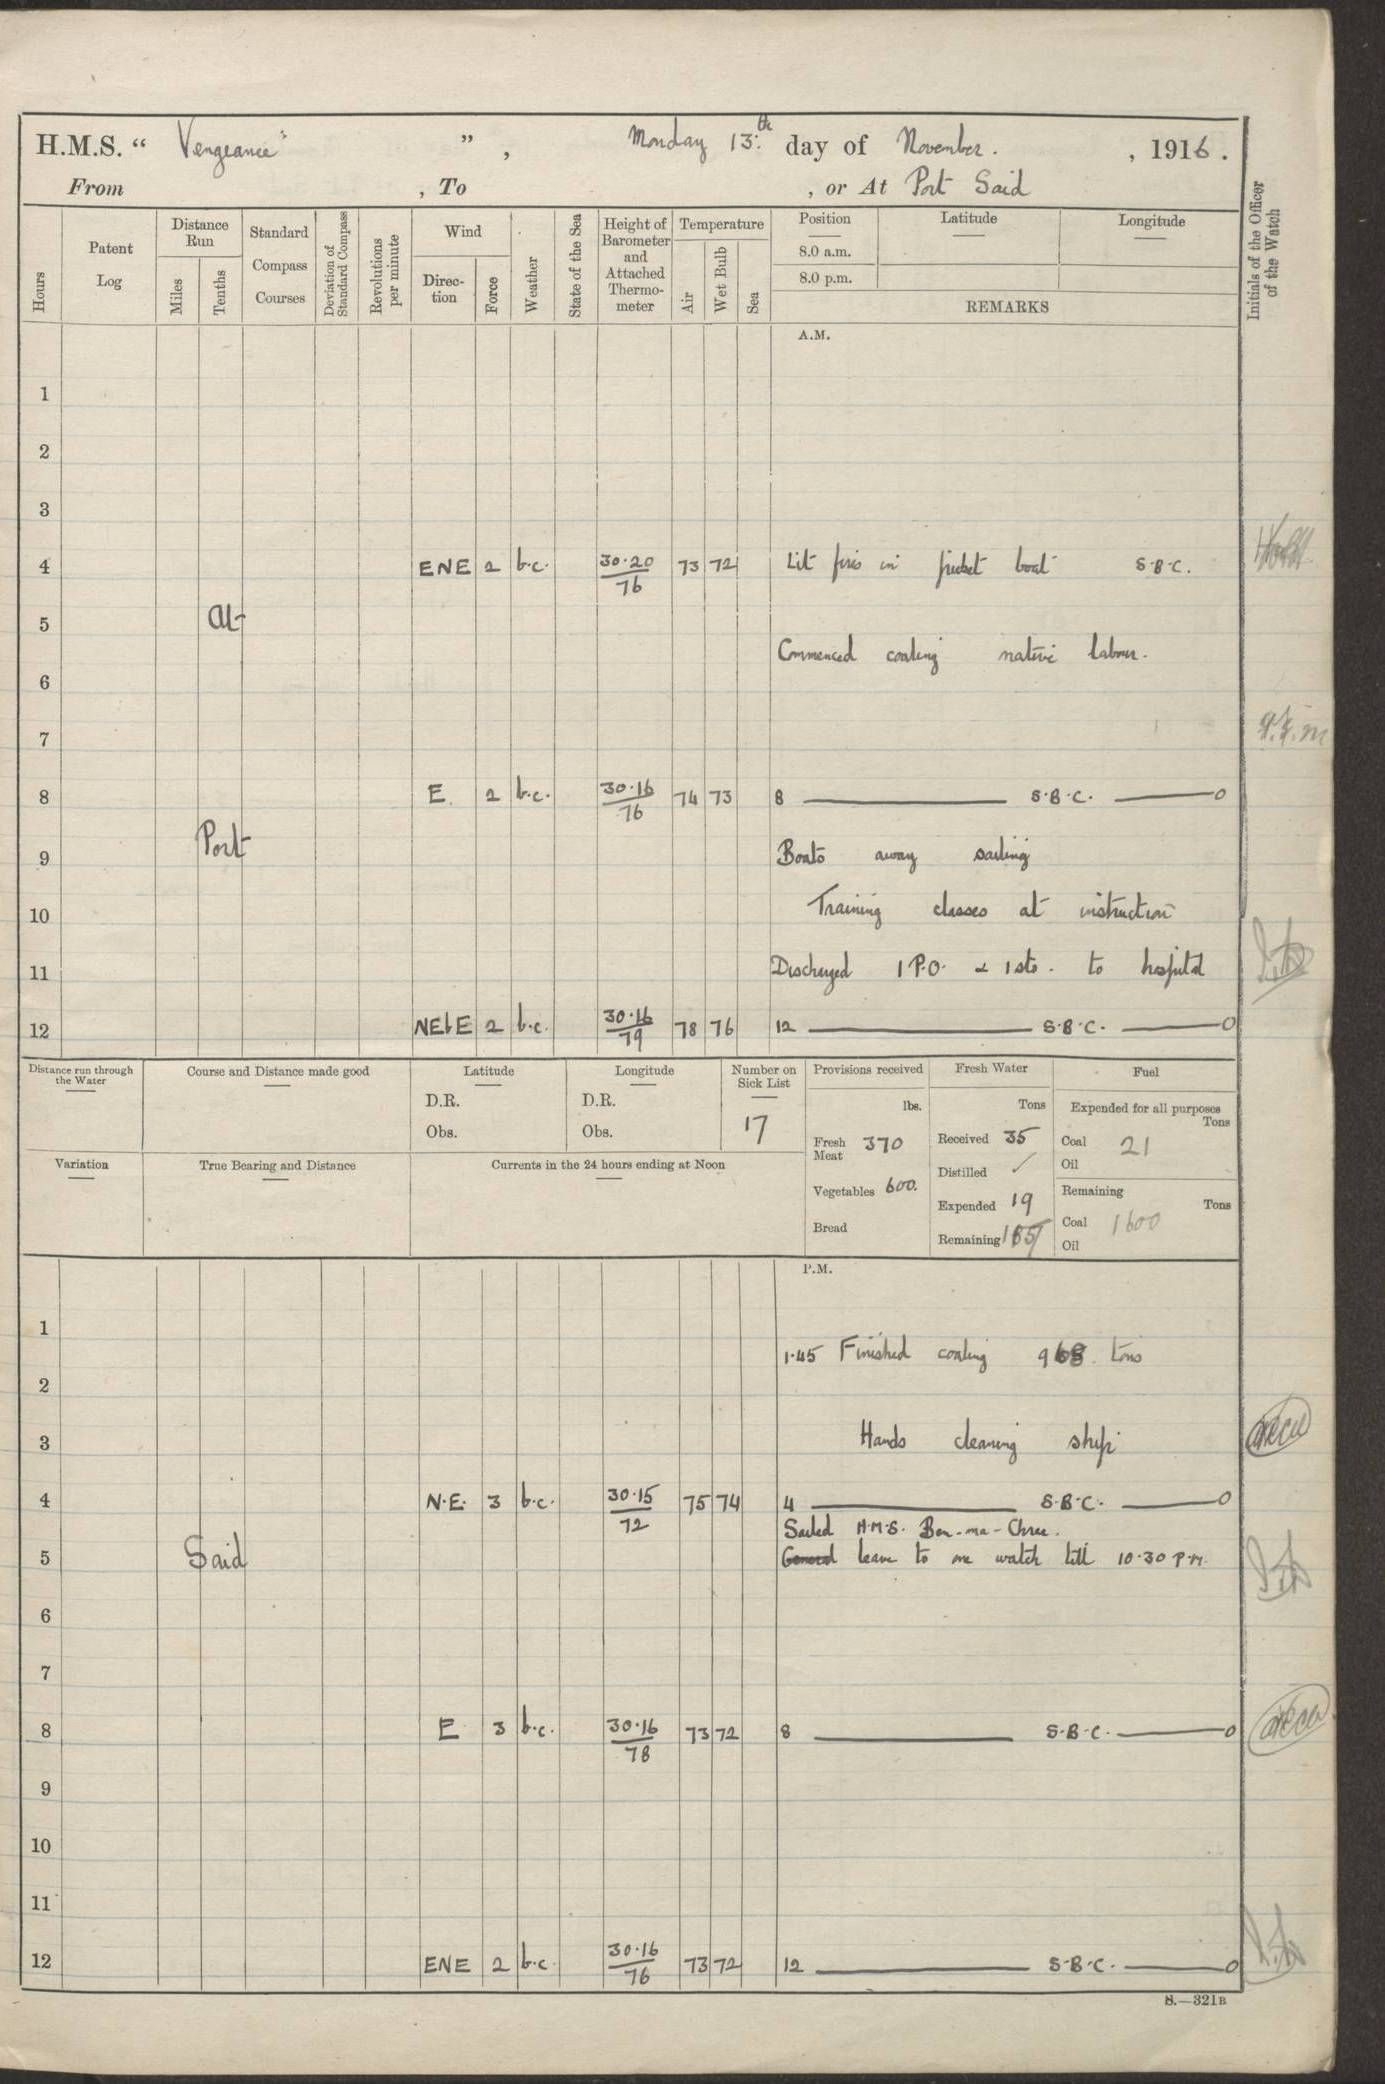 H.M.S. “ Vengeance ” , Monday 13th day of November. , 1916.
From , To , or At Port Said
Hours
Patent Log
Distance Run
Miles
Tenths
Standard Compass Courses
Deviation of Standard Compass
Revolutions per minute
Wind
Direction
Force
Weather
State of the Sea
Height of Barometer and Attached Thermometer
Temperature
Air
Wet Bulb
Sea
Position
Latitude
Longitude
8.0 a.m.
8.0 p.m.
REMARKS
Initials of the Officer of the Watch
A.M.
1
2
3
4 ENE 2 b.c. 30.20/76 73 72 Lit fires in picket boat S.B.C.
At
5
Commenced coaling native labour.
6
7
8 E. 2 b.c. 30.16/76 74 73 8 S.B.C.
Port
9 Boats away sailing
10 Training classes at instruction
11 Discharged 1 P.O. & 1 sto. to hospital
12 NEbE 2 b.c. 30.16/79 78 76 12 S.B.C.
Distance run through the Water
Course and Distance made good
Latitude
D.R.
Obs.
Longitude
D.R.
Obs.
Number on Sick List
17
Provisions received
lbs.
Fresh Meat 370
Vegetables 600.
Bread
Fresh Water
Tons
Received 35
Distilled ✓
Expended 19
Remaining
Fuel
Expended for all purposes
Tons
Coal 21
Oil
Remaining
Tons
Coal 1600
Oil
Variation
True Bearing and Distance
Currents in the 24 hours ending at Noon
P.M.
1
1.45 Finished coaling 968 tons
2
3 Hands cleaning ship
4 N.E. 3 b.c. 30.15/72 75 74 4 S.B.C.
Sailed H.M.S. Ben-ma-Chree.
5 Said General leave to one watch till 10.30 P.M.
6
7
8 E 3 b.c. 30.16/78 73 72 8 S.B.C.
9
10
11
12 ENE 2 b.c. 30.16/76 73 72 12 S.B.C.
S.—321B